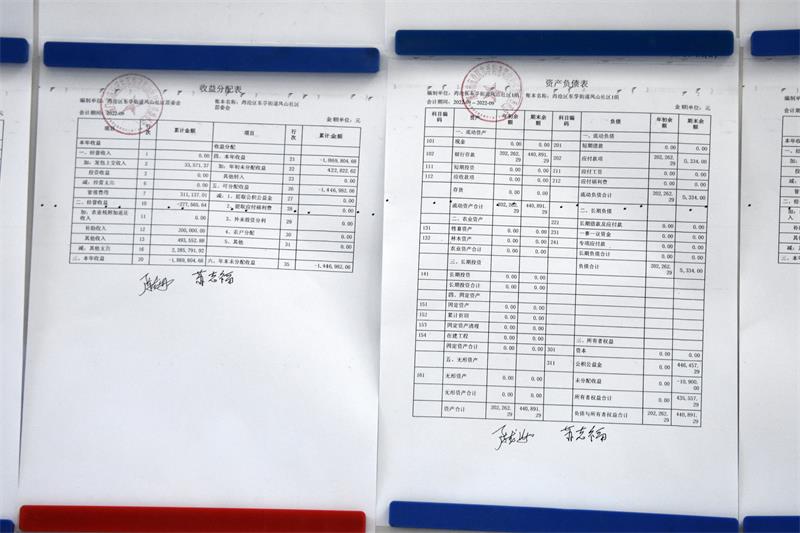 收益分配表
编制单位：冯沧区东学街道凤山社区居委会 账本名称：冯沧区东学街道凤山社区居委会
会计期间：2022-09 金额单位：元
项目 行次 累计金额 项目 行次 累计金额
本年收益 收益分配
一、经营收入 1 0.00 四、本年收益 21 -1,869,804.68
加：发包上交收入 3 33,571.37 加：年初未分配收益 22 422,822.62
投资收益 4 0.00 其他转入 23 0.00
减：经营支出 6 0.00 五、可分配收益 26 -1,446,982.06
管理费用 7 311,137.01 减：1、提取公积公益金 27 0.00
二、经营收益 10 -277,565.64 2、提取应付福利费 28 0.00
加：农业税附加返还收入 11 0.00 3、外来投资分利 29 0.00
补助收入 12 200,000.00 4、农户分配 30 0.00
其他收入 13 493,552.88 5、其他 31 0.00
减：其他支出 16 2,285,791.92
三、本年收益 20 -1,869,804.68 六、年末未分配收益 35 -1,446,982.06
苏志福
资产负债表
会计期间：2022-09 -2022-09 金额单位：元
科目编码 资产 年初余额 期末余额 科目编码 负债 年初余额 期末余额
一、流动资产 一、流动负债
101 现金 0.00 0.00 201 短期借款 0.00 0.00
102 银行存款 202,262.29 440,891.29 202 应付款项 202,262.29 5,334.00
111 短期投资 0.00 0.00 211 应付工资 0.00 0.00
112 应收款项 0.00 0.00 212 应付福利费 0.00 0.00
存货 0.00 0.00 流动负债合计 202,262.29 5,334.00
流动资产合计 202,262.29 440,891.29 二、长期负债
二、农业资产 221 长期借款及应付款 0.00 0.00
131 牲畜资产 0.00 0.00 231 一事一议资金 0.00 0.00
132 林木资产 0.00 0.00 241 专项应付款 0.00 0.00
农业资产合计 0.00 0.00 长期负债合计 0.00 0.00
三、长期投资 负债合计 202,262.29 5,334.00
141 长期投资 0.00 0.00
长期投资合计 0.00 0.00
四、固定资产
151 固定资产 0.00 0.00
152 累计折旧 0.00 0.00
153 固定资产清理 0.00 0.00
154 在建工程 0.00 0.00 三、所有者权益
固定资产合计 0.00 0.00 301 资本 0.00 0.00
五、无形资产 311 公积公益金 0.00 446,457.29
161 无形资产 0.00 0.00 未分配收益 0.00 -10,900.00
无形资产合计 0.00 0.00 所有者权益合计 0.00 435,557.29
资产合计 202,262.29 440,891.29 负债与所有者权益合计 202,262.29 440,891.29
苏志福